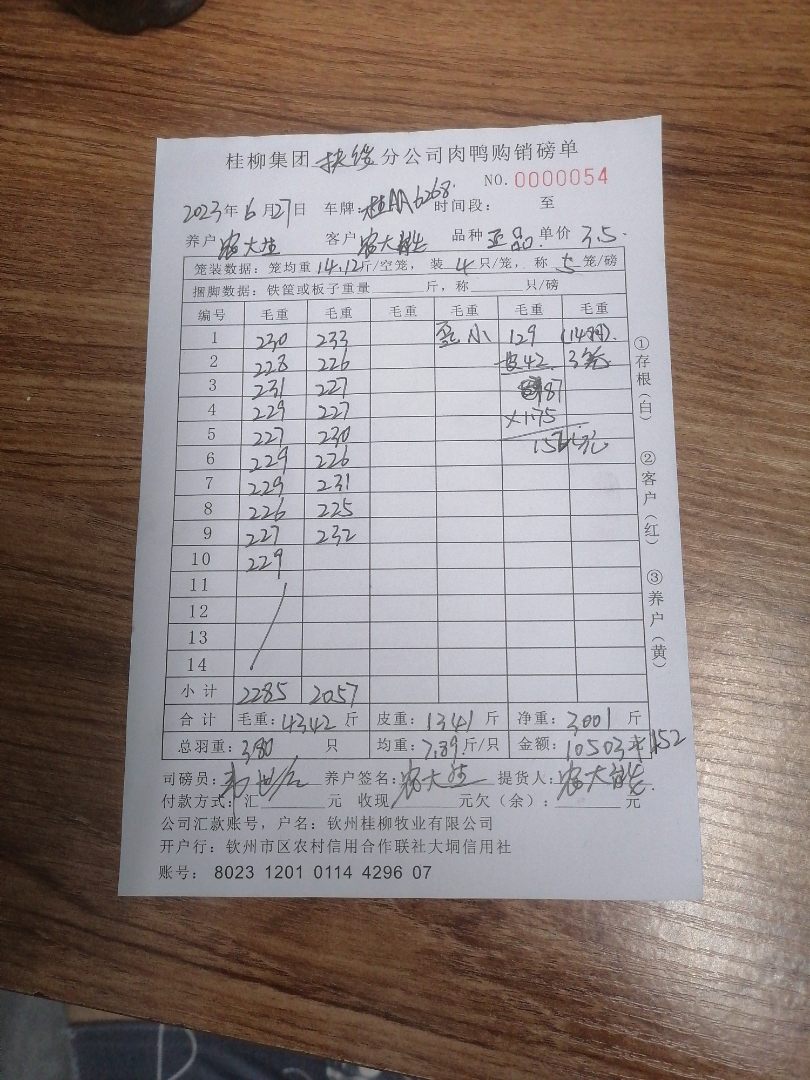 桂柳集团 扶绥 分公司肉鸭购销磅单
NO. 0000054
2023年6月27日 车牌: 桂AA6268 时间段: 至
养户 农大 客户 农大 品种 正品 单价 3.5
笼装数据: 笼均重 14.12斤/空笼, 装 4 只/笼, 称 5 笼/磅
捆脚数据: 铁筐或板子重量 斤, 称 只/磅
编号 毛重 毛重 毛重 毛重 毛重 毛重
1 230 233 小 129 (14只)
2 228 226 皮42 3笼
3 231 227 87
4 229 227 ×1.75
5 227 230 152元
6 229 226
7 229 231
8 226 225
9 227 232
10 229
11
12
13
14
小计 2285 2057
合计 毛重: 4342 斤 皮重: 1341 斤 净重: 3001 斤
总羽重: 380 只 均重: 7.89斤/只 金额: 10503+152
司磅员: 养户签名: 农大 提货人: 农大
付款方式: 汇 元 收现 元欠(余): 元
公司汇款账号, 户名: 钦州桂柳牧业有限公司
开户行: 钦州市区农村信用合作联社大垌信用社
账号: 8023 1201 0114 4296 07
①存根(白)
②客户(红)
③养户(黄)